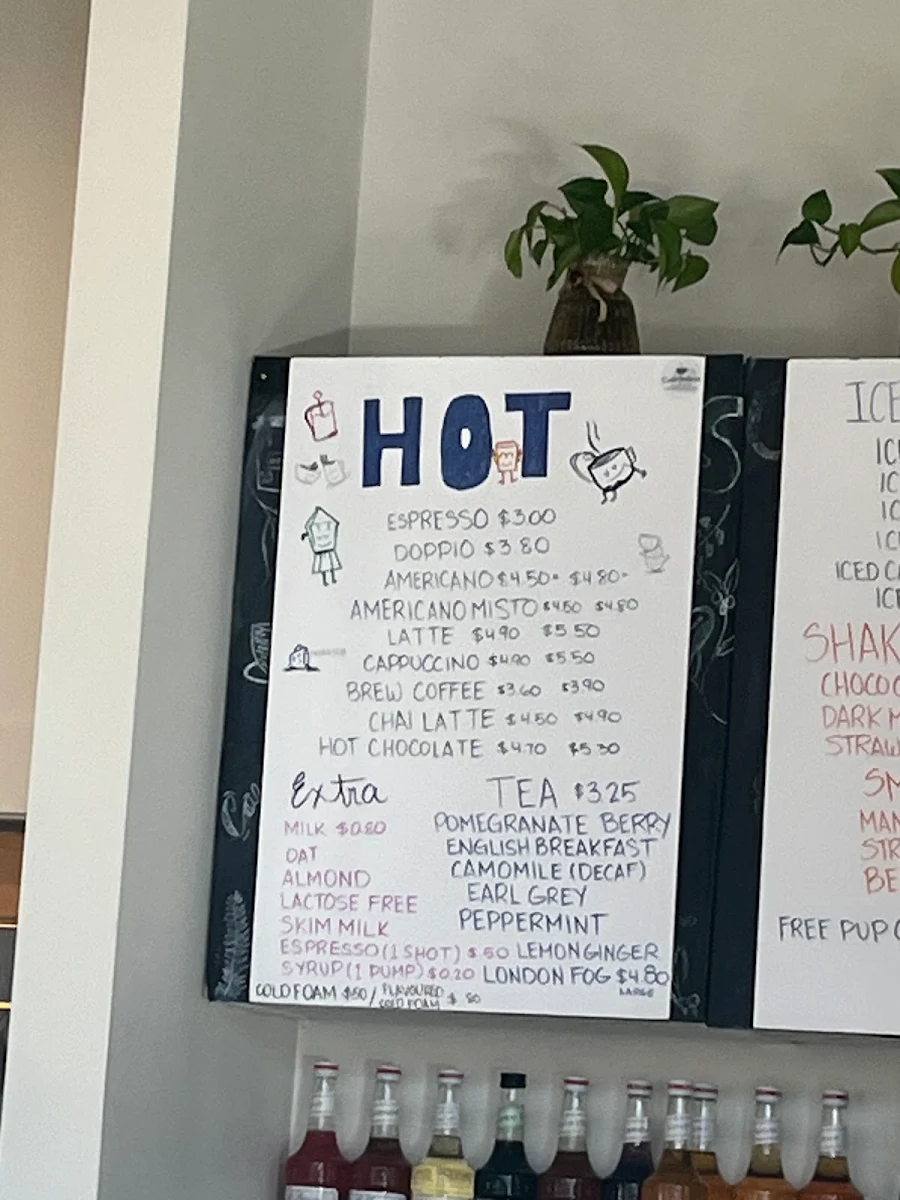 HOT
ESPRESSO $3.00
DOPPIO $3.80
AMERICANO $4.50 $4.80
AMERICANO MISTO $4.50 $4.80
LATTE $4.90 $5.50
CAPPUCCINO $4.90 $5.50
BREW COFFEE $3.60 $3.90
CHAI LATTE $4.50 $4.90
HOT CHOCOLATE $4.70 $5.30
Extra
MILK $0.80
OAT
ALMOND
LACTOSE FREE
SKIM MILK
ESPRESSO (1 SHOT) $.50
SYRUP (1 PUMP) $0.20
COLD FOAM $.50 / FLAVOURED
COLD FOAM $.80
TEA $3.25
POMEGRANATE BERRY
ENGLISH BREAKFAST
CAMOMILE (DECAF)
EARL GREY
PEPPERMINT
LEMON GINGER
LONDON FOG $4.80
LARGE
ICE
IC
IC
IC
IC
ICED CA
ICE
SHAK
CHOCO
DARK M
STRAW
SM
MAN
STR
BE
FREE PUP C